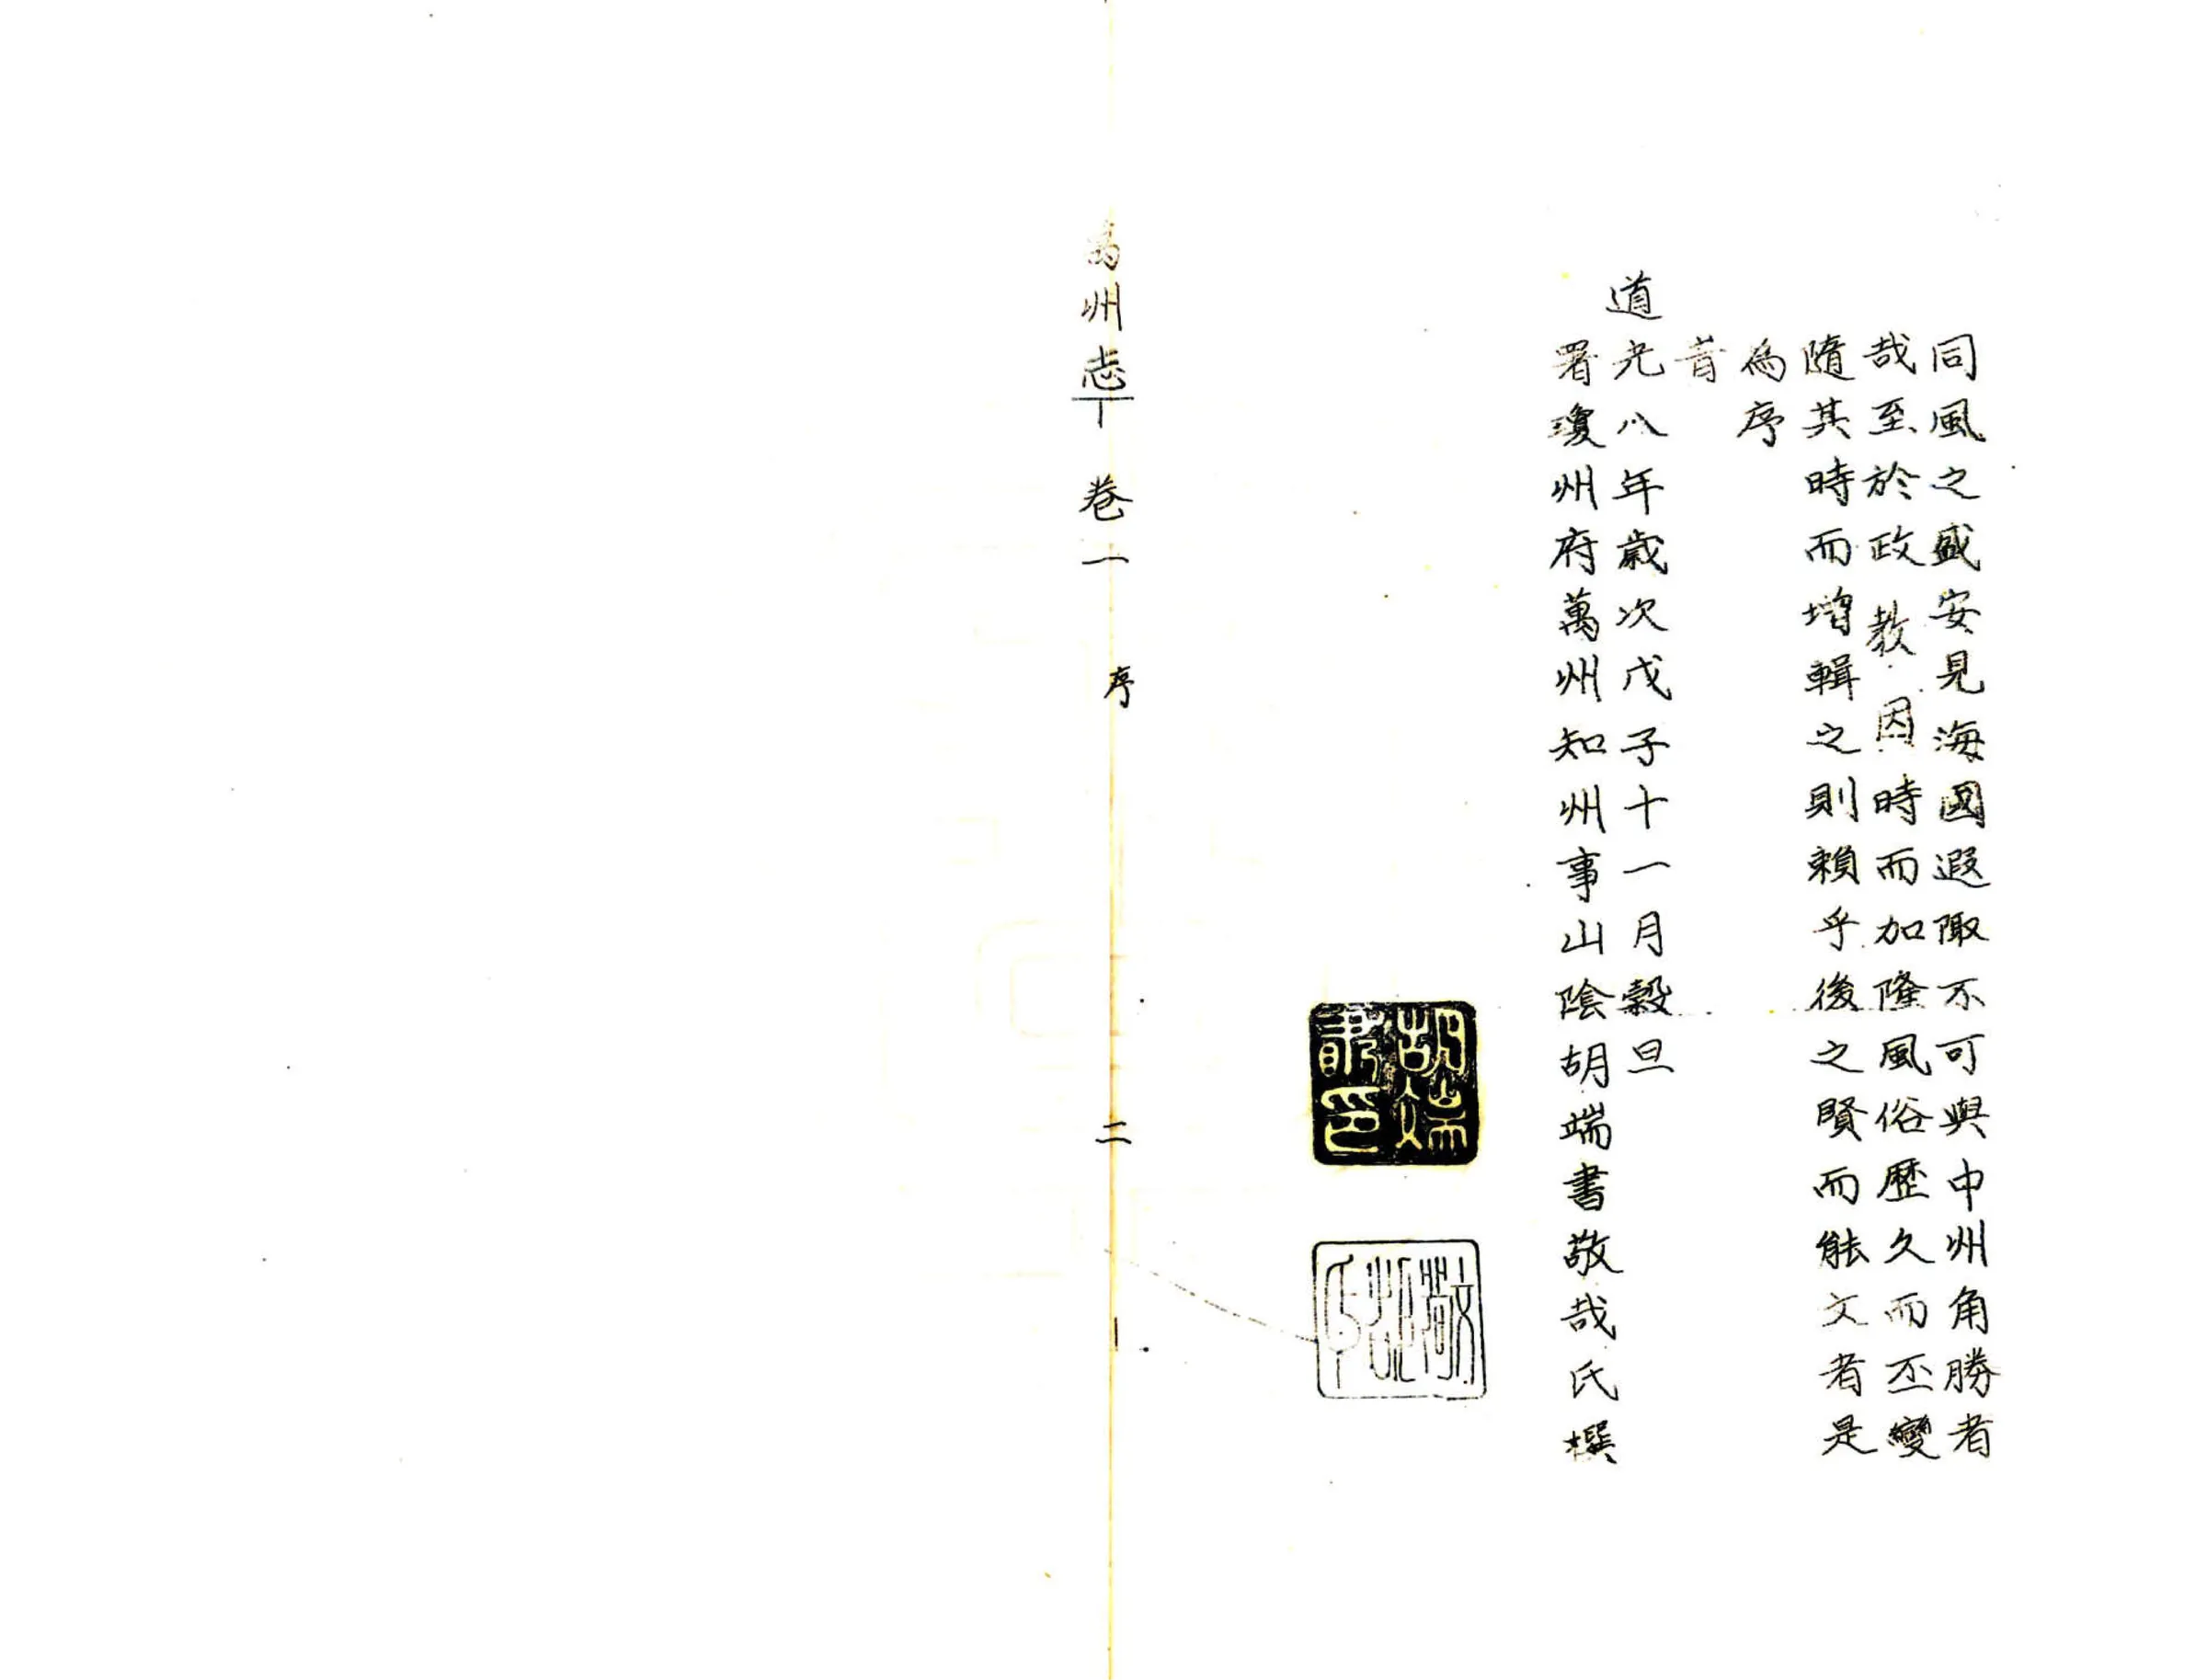 同風之盛安見海國遐陬不可與中州角勝者
哉至於政教因時而加隆風俗歷久而丕變
隨其時而增輯之則賴乎後之賢而能文者是
為序
旹
道光八年歲次戊子十一月穀旦
署瓊州府萬州知州事山陰胡端書敬哉氏撰
胡端書印
萬州志 卷一 序 二